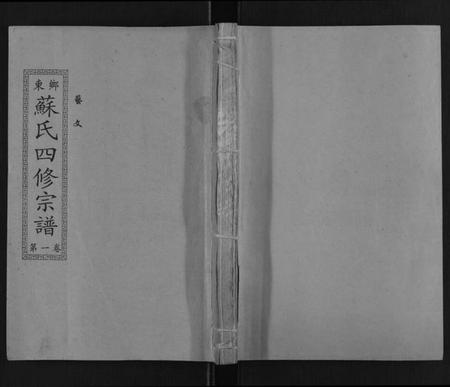 東鄉
蘇氏四修宗譜
卷一第
藝文